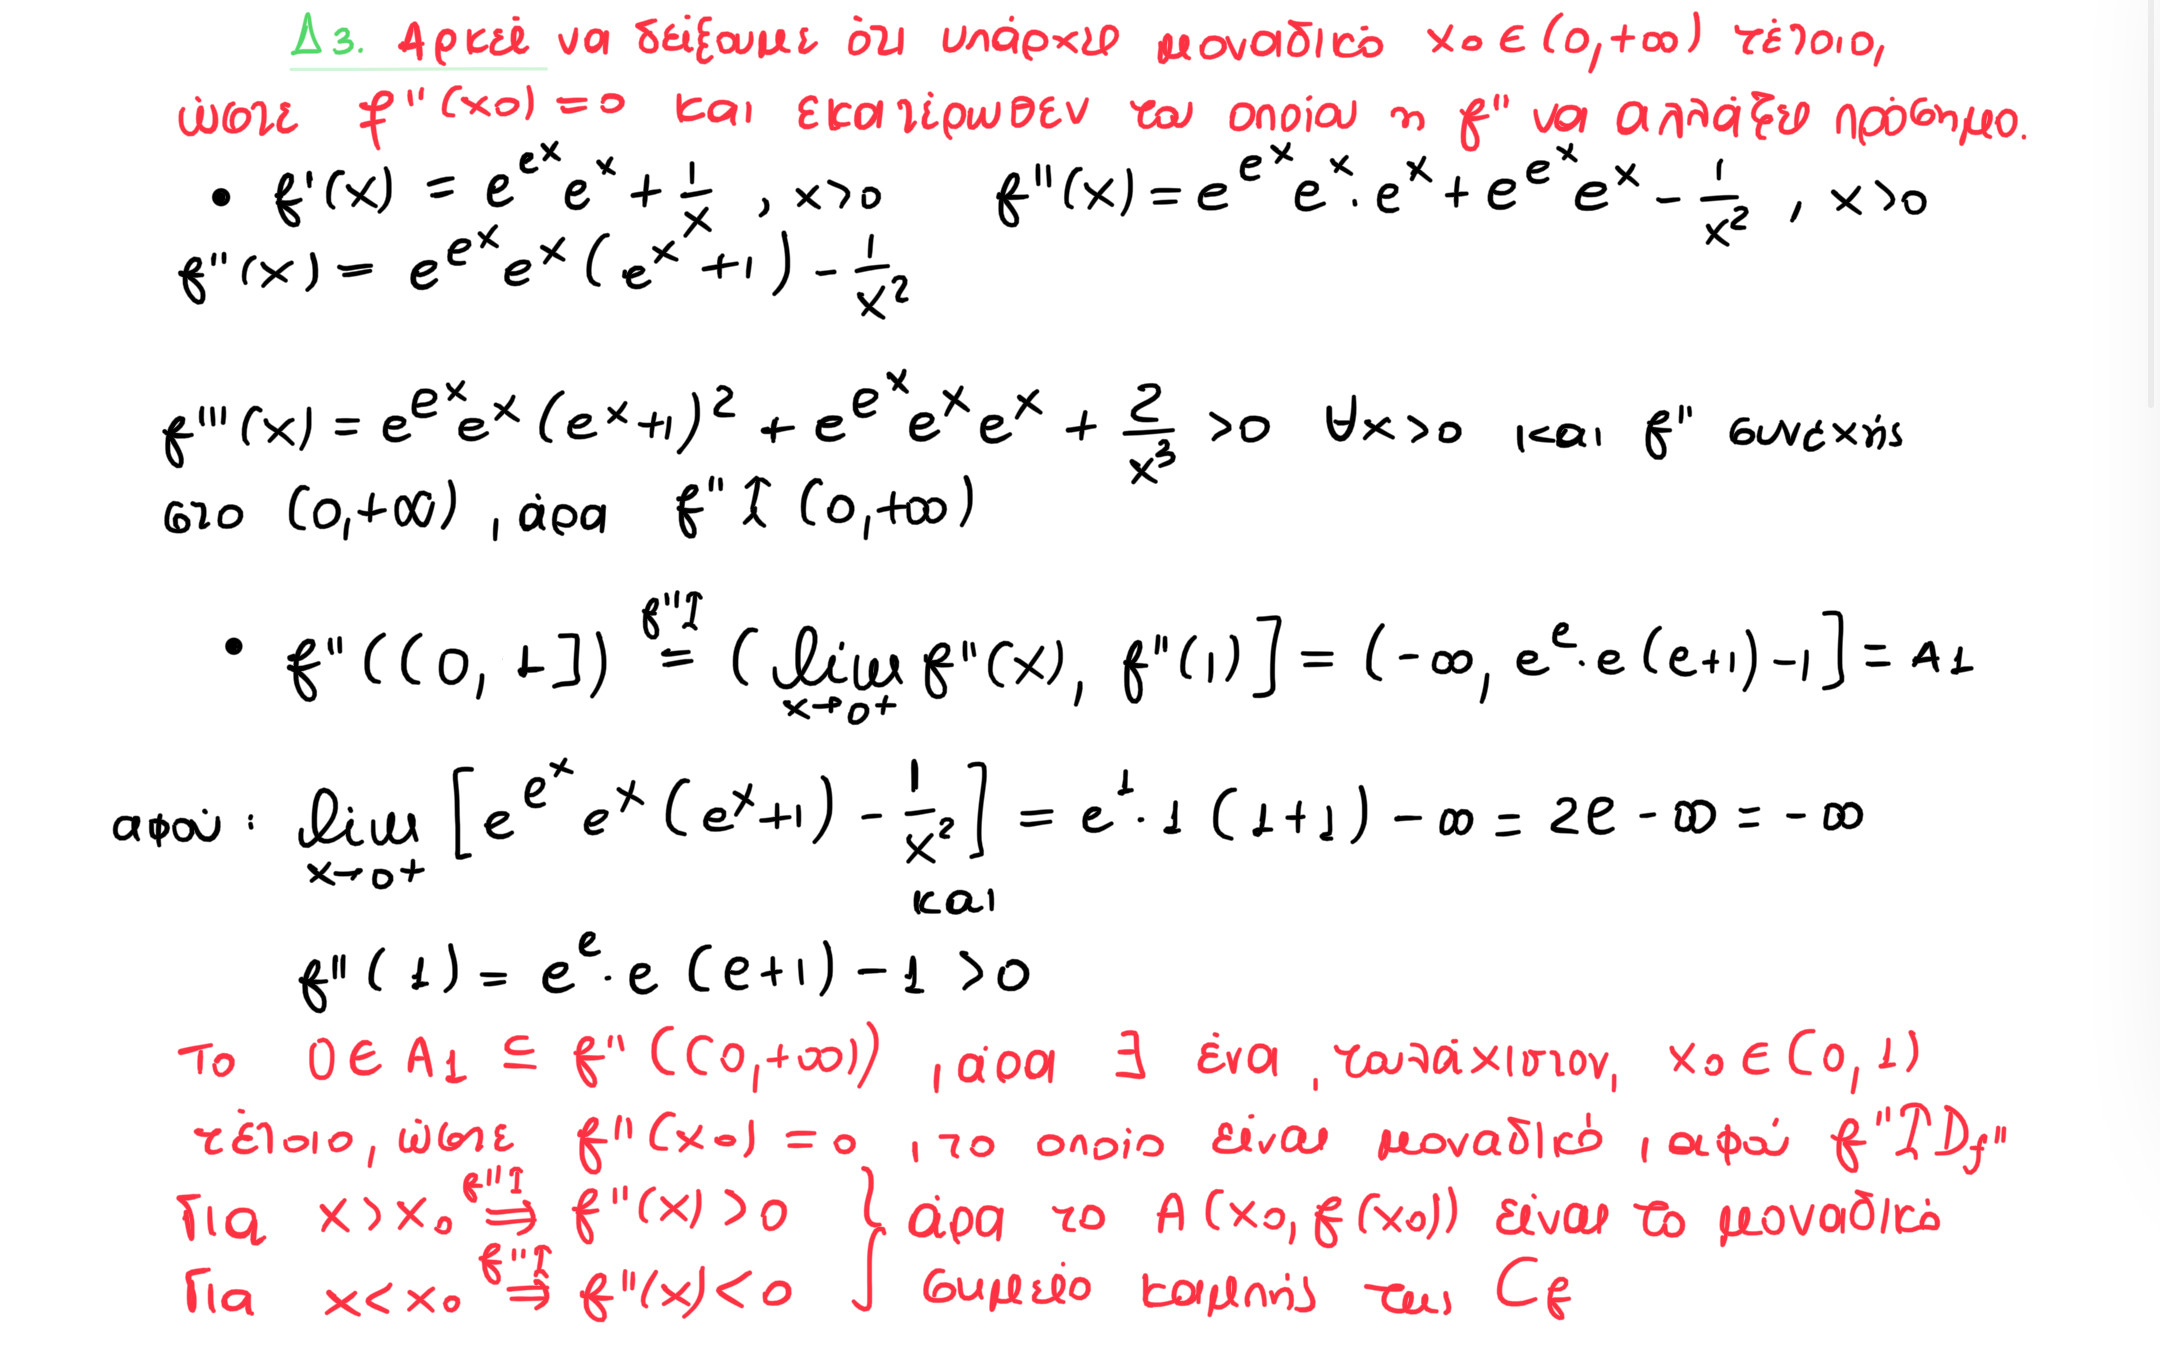 Δ3. Αρκεί να δείξουμε ότι υπάρχει μοναδικό x₀ ∈ (0,+∞) τέτοιο,
ώστε f''(x₀) = 0 και εκατέρωθεν του οποίου η f'' να αλλάζει πρόσημο.
• f'(x) = e^{e^x} e^x + 1/x , x>0 f''(x) = e^{e^x} e^x · e^x + e^{e^x} e^x - 1/x² , x>0
f''(x) = e^{e^x} e^x (e^x + 1) - 1/x²
f'''(x) = e^{e^x} e^x (e^x+1)² + e^{e^x} e^x e^x + 2/x³ >0 ∀x>0 και f'' συνεχής
στο (0,+∞) , άρα f'' ↑ (0,+∞)
• f''((0, 1]) =^{f''↑} (lim_{x→0+} f''(x), f''(1)] = (-∞, e^e · e (e+1) - 1] = A1
αφού : lim_{x→0+} [e^{e^x} e^x (e^x+1) - 1/x²] = e^1 · 1 (1+1) - ∞ = 2e - ∞ = -∞
και
f''(1) = e^e · e (e+1) - 1 >0
Το 0 ∈ A1 ⊆ f''((0,+∞)) , άρα ∃ ένα , τουλάχιστον, x₀ ∈ (0, 1)
τέτοιο, ώστε f''(x₀) = 0 , το οποίο είναι μοναδικό , αφού f''↑ D_{f''}
Για x > x₀ ⇒^{f''↑} f''(x) > 0 } άρα το A(x₀, f(x₀)) είναι το μοναδικό
Για x < x₀ ⇒^{f''↑} f''(x) < 0 } σημείο καμπής της C_f